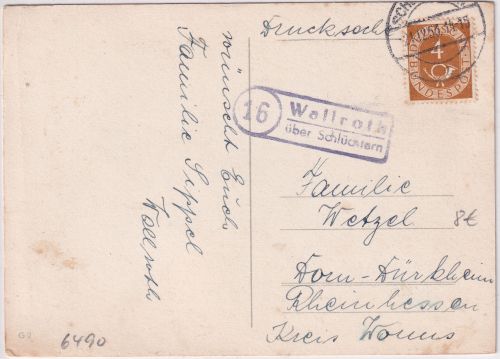 wünscht Euch
Familie Seppel
Wallroth
Drucksache
4
DEUTSCHE BUNDESPOST
16
Wallroth
über Schlüchtern
Familie
Wetzel
8€
Dorn-Dürkheim
Rheinhessen
Kreis Worms
6490